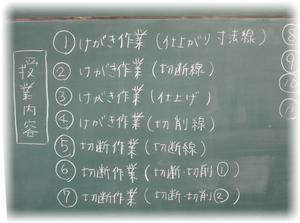 授業内容
① けがき作業（仕上がり寸法線）
② けがき作業（切断線）
③ けがき作業（仕上げ）
④ けがき作業（切削線）
⑤ 切断作業（切断線）
⑥ 切断作業（切断・切削①）
⑦ 切断作業（切断・切削②）
⑧
⑨